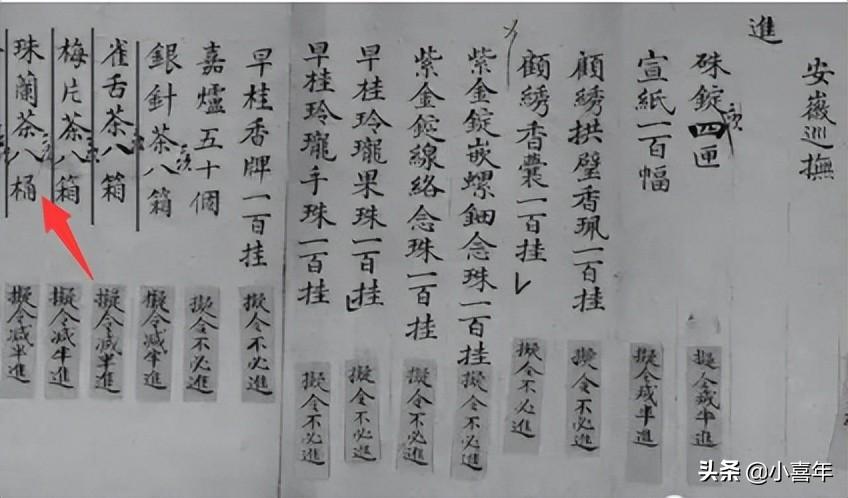 安徽巡撫
進
硃錠四匣
擬令減半進
宣紙一百幅
擬令減半進
顧綉拱璧香珮一百挂
擬令不必進
顧綉香囊一百挂
擬令不必進
紫金錠嵌螺鈿念珠一百挂
擬令不必進
紫金錠線絡念珠一百挂
擬令不必進
早桂玲瓏果珠一百挂
擬令不必進
早桂玲瓏手珠一百挂
擬令不必進
早桂香牌一百挂
擬令不必進
嘉爐五十個
擬令不必進
銀針茶八箱
擬令減半進
雀舌茶八箱
擬令減半進
梅片茶八箱
擬令減半進
珠蘭茶八桶
擬令減半進
头条 @小喜年